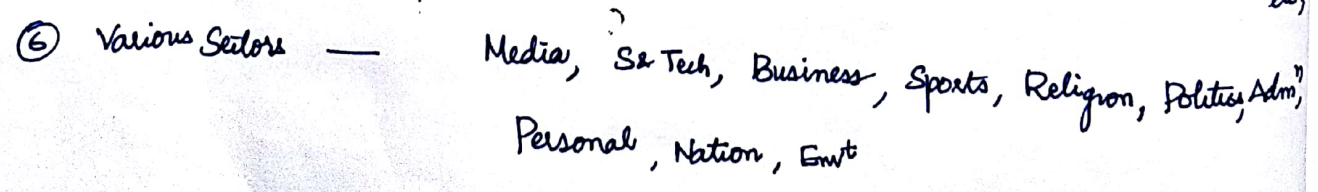 ⑥ Various Sectors — Media, S& Tech, Business, Sports, Religion, Politics, Admⁿ,
Personal, Nation, Envt